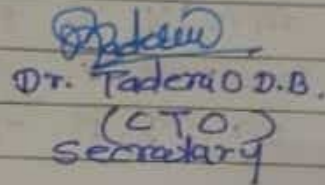 Dr. Taderio D.B.
(CTO.)
Secratary